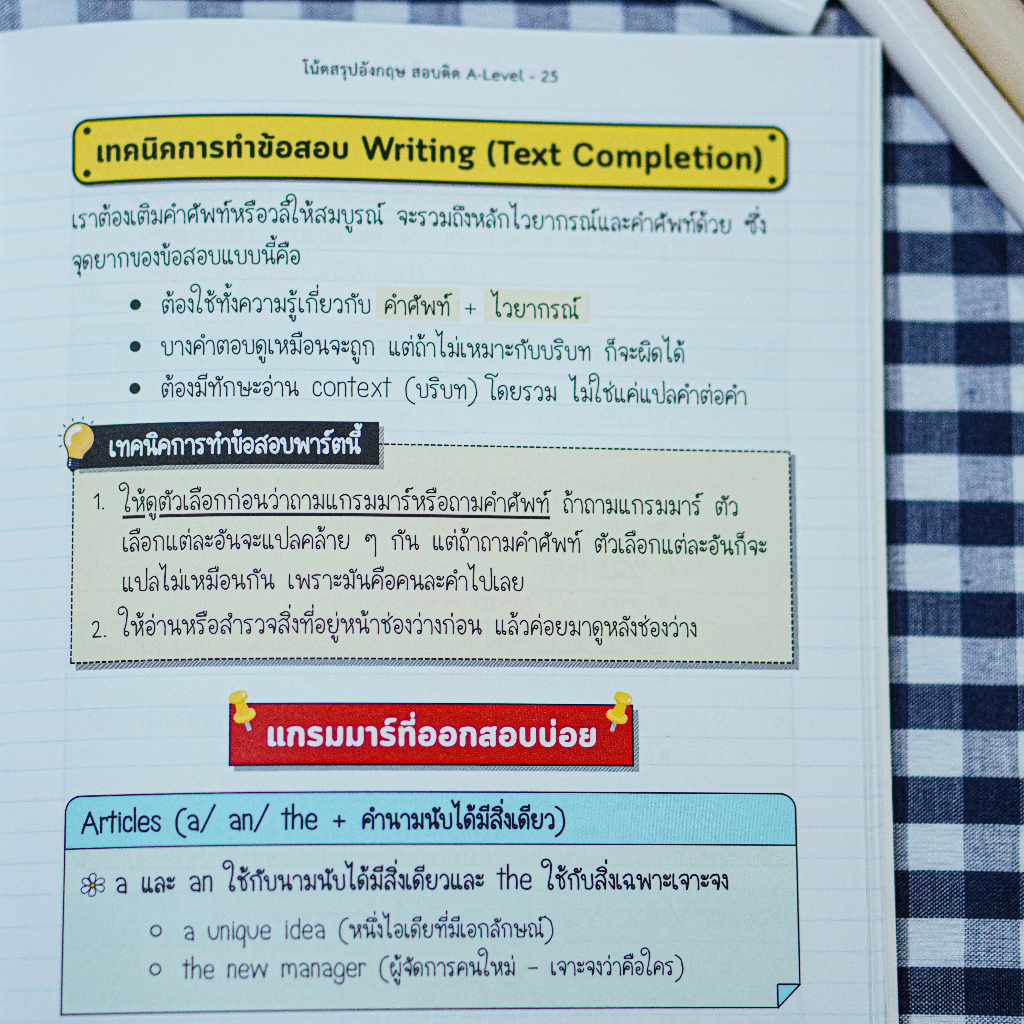 โน้ตสรุปอังกฤษ สอบติด A-Level - 25
เทคนิคการทำข้อสอบ Writing (Text Completion)
เราต้องเติมคำศัพท์หรือวลีให้สมบูรณ์ จะรวมถึงหลักไวยากรณ์และคำศัพท์ด้วย ซึ่ง
จุดยากของข้อสอบแบบนี้คือ
• ต้องใช้ทั้งความรู้เกี่ยวกับ คำศัพท์ + ไวยากรณ์
• บางคำตอบดูเหมือนจะถูก แต่ถ้าไม่เหมาะกับบริบท ก็จะผิดได้
• ต้องมีทักษะอ่าน context (บริบท) โดยรวม ไม่ใช่แค่แปลคำต่อคำ
เทคนิคการทำข้อสอบพาร์ตนี้
1. ให้ดูตัวเลือกก่อนว่าถามแกรมมาร์หรือถามคำศัพท์ ถ้าถามแกรมมาร์ ตัว
เลือกแต่ละอันจะแปลคล้าย ๆ กัน แต่ถ้าถามคำศัพท์ ตัวเลือกแต่ละอันก็จะ
แปลไม่เหมือนกัน เพราะมันคือคนละคำไปเลย
2. ให้อ่านหรือสำรวจสิ่งที่อยู่หน้าช่องว่างก่อน แล้วค่อยมาดูหลังช่องว่าง
แกรมมาร์ที่ออกสอบบ่อย
Articles (a/ an/ the + คำนามนับได้มีสิ่งเดียว)
a และ an ใช้กับนามนับได้มีสิ่งเดียวและ the ใช้กับสิ่งเฉพาะเจาะจง
○ a unique idea (หนึ่งไอเดียที่มีเอกลักษณ์)
○ the new manager (ผู้จัดการคนใหม่ - เจาะจงว่าคือใคร)